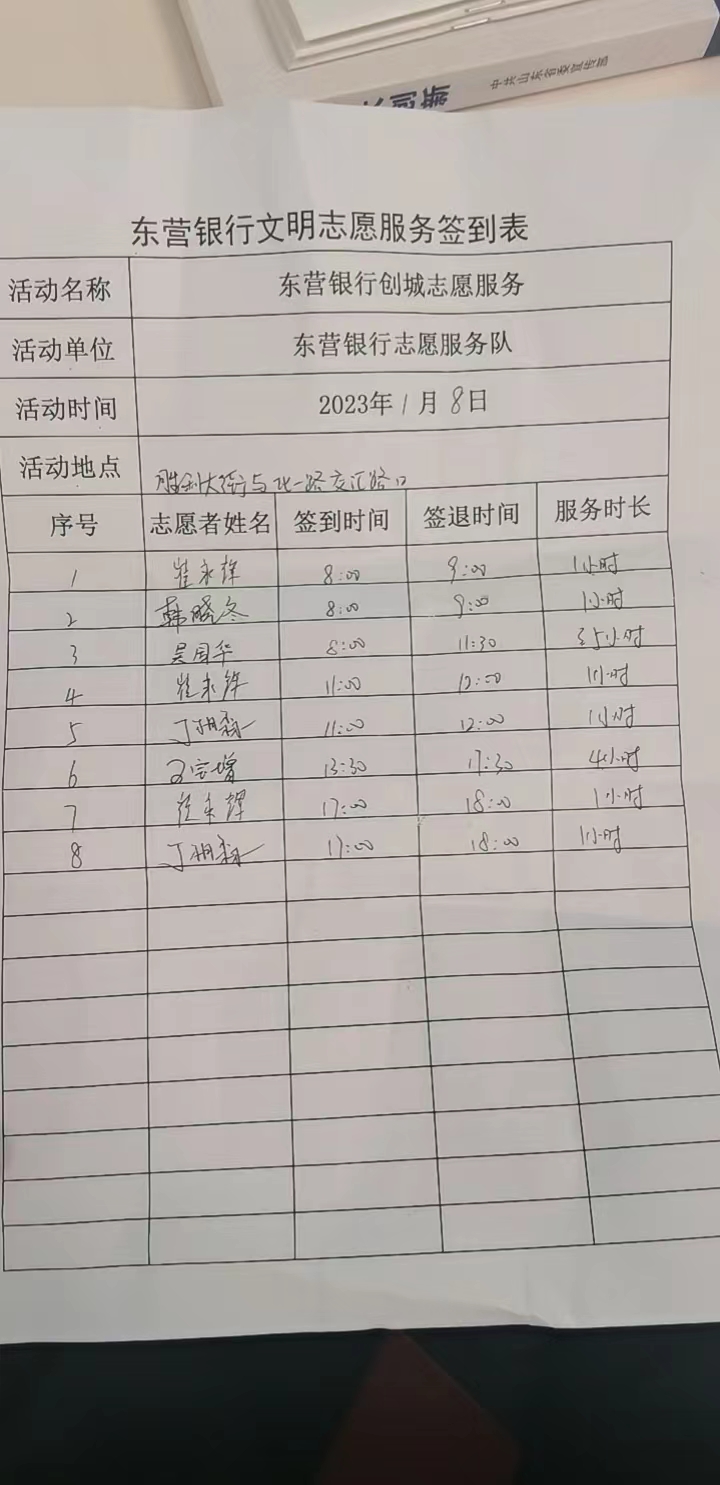 中共山东省委宣传部
东营银行文明志愿服务签到表
活动名称 东营银行创城志愿服务
活动单位 东营银行志愿服务队
活动时间 2023年1月8日
活动地点 胜利大街与北一路交汇路口
序号 志愿者姓名 签到时间 签退时间 服务时长
1 崔永辉 8:00 9:00 1小时
2 韩晓冬 8:00 9:00 1小时
3 吴国华 8:00 11:30 3.5小时
4 崔永辉 11:00 12:00 1小时
5 11:00 12:00 1小时
6 王宗增 13:30 17:30 4小时
7 崔永辉 17:00 18:00 1小时
8 17:00 18:00 1小时